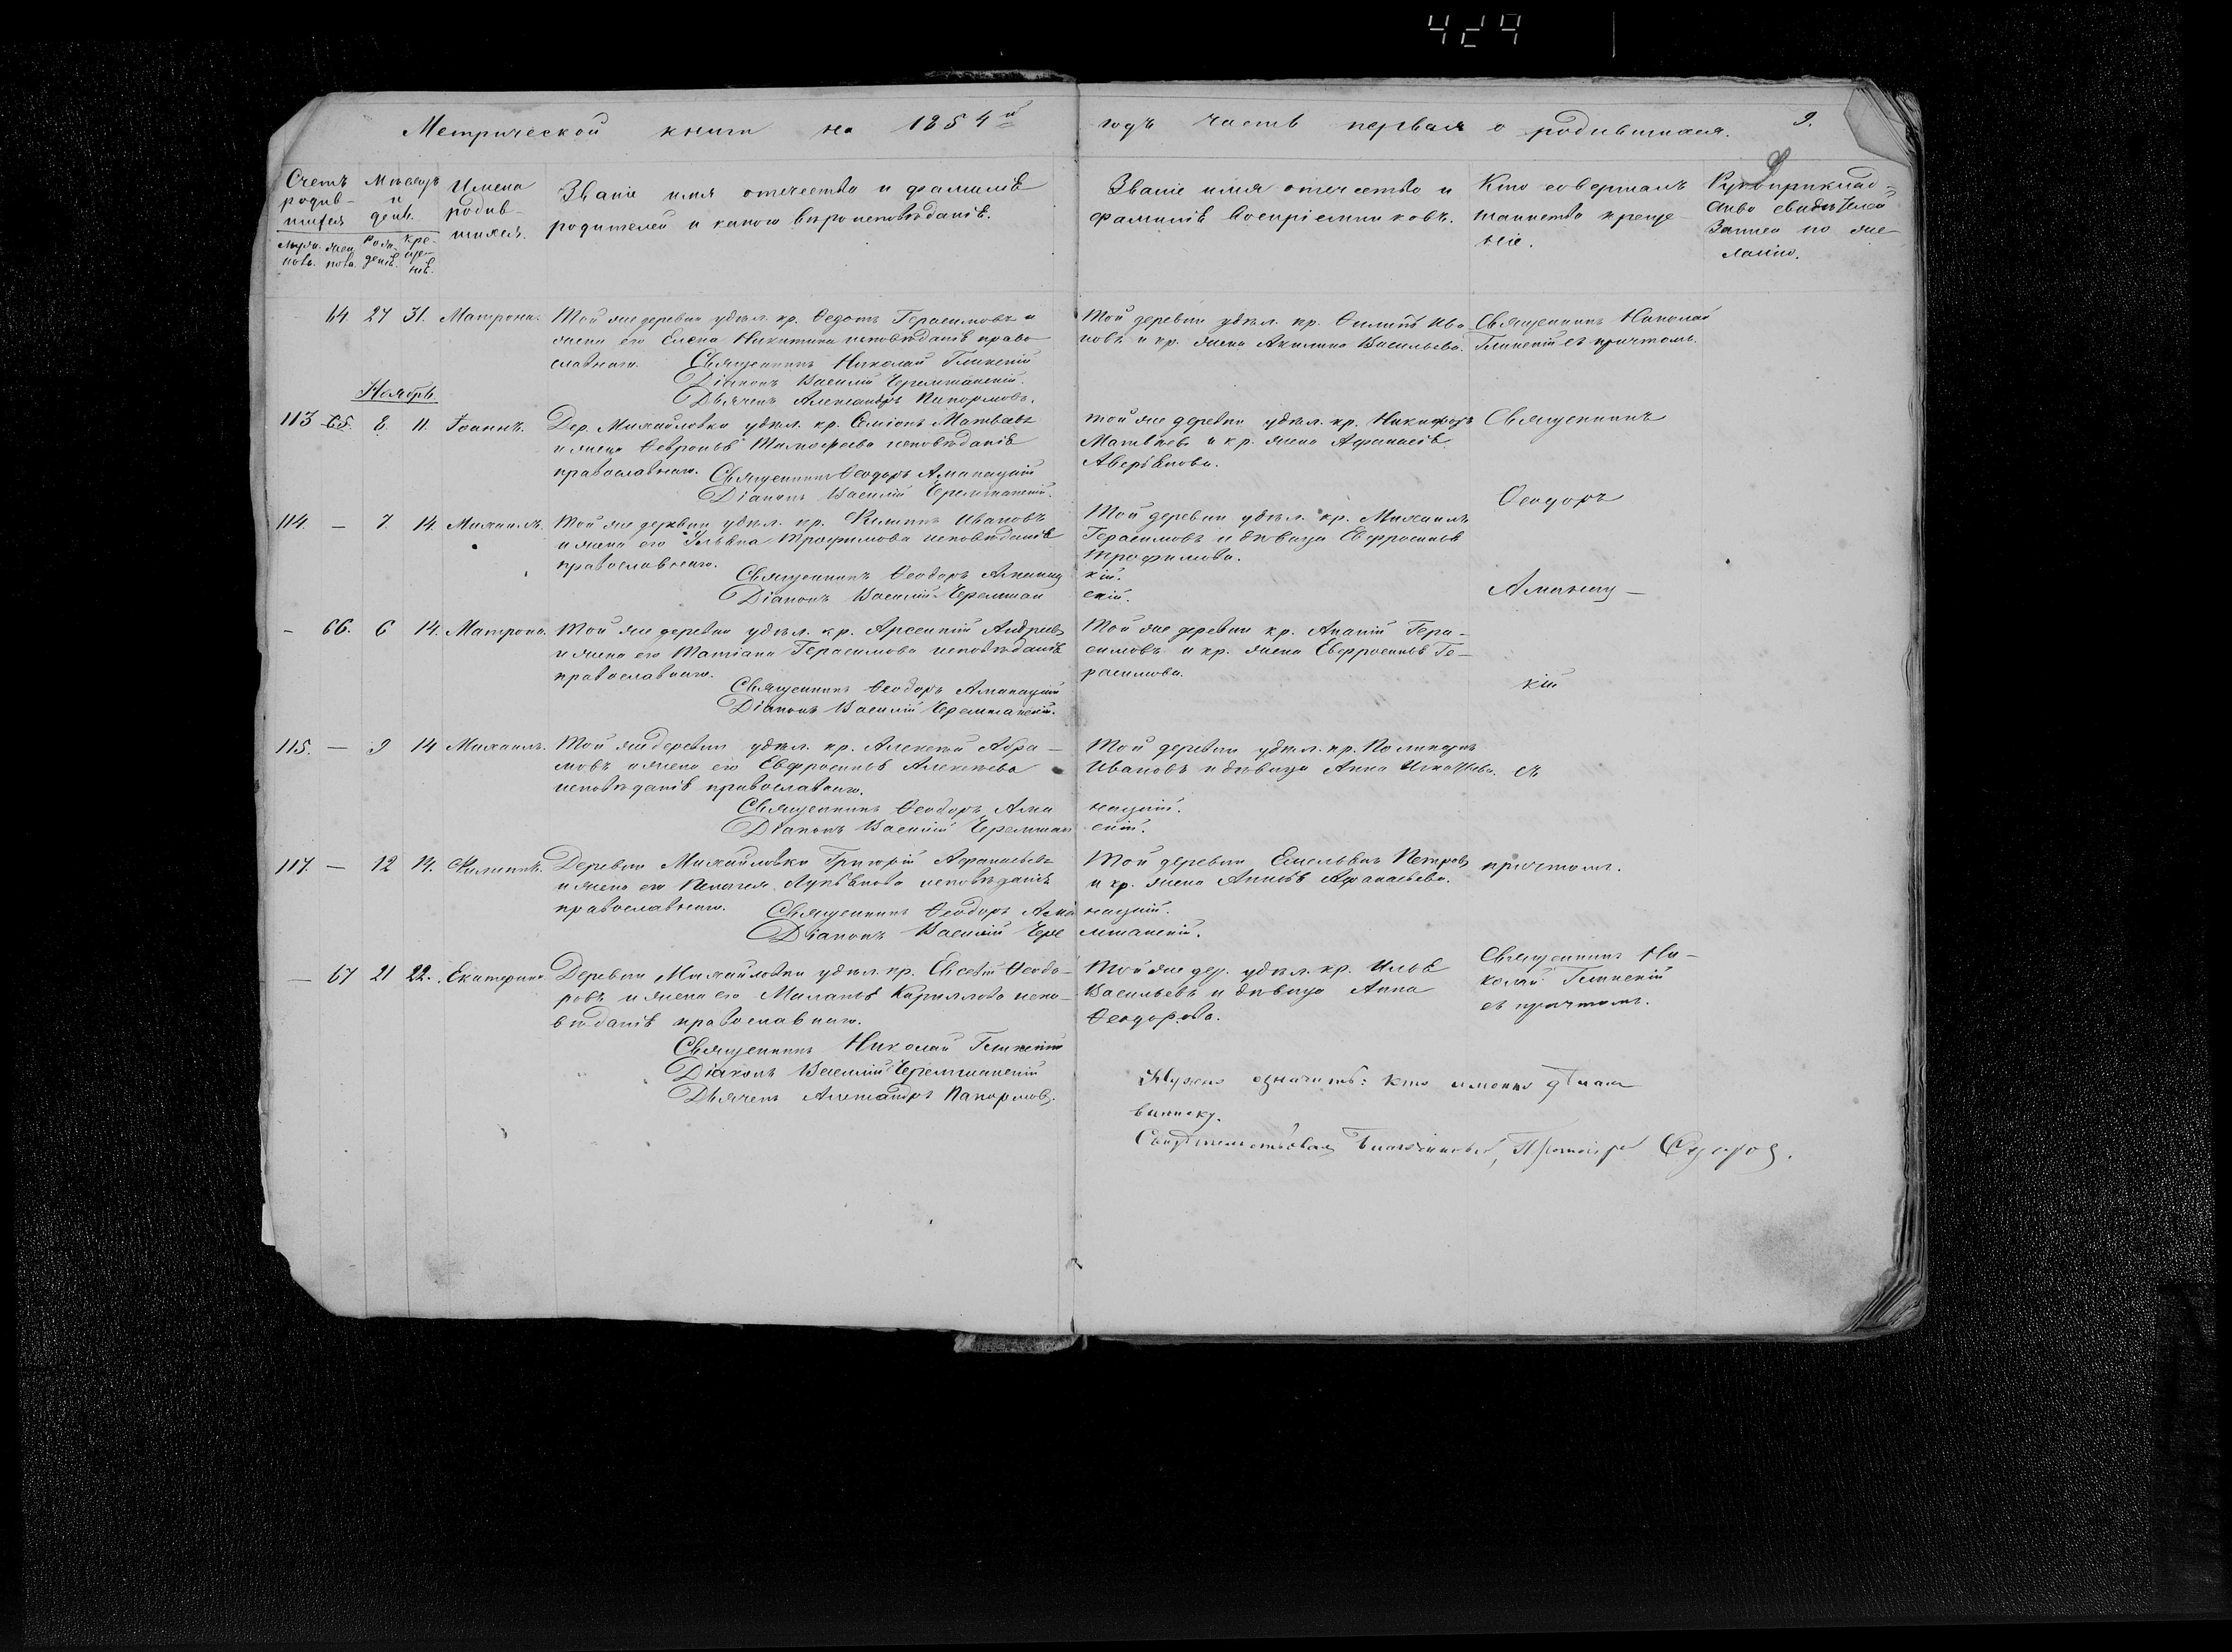 429
Метрической книги на 1854й годъ часть первая о родившихся. 9.
9
Счетъ родив-
шихся
Мѣсяцъ
и
день.
Имена
родив-
шихся.
Званіе имя отечество и фамилія
родителей и какого вѣроисповѣданія.
Званіе имя отечество и
фамилія воспріемниковъ.
Кто совершалъ
таинство креще
нія.
Рукоприклад=
ство свидѣтелей
записи по же
ланію.
64 27 31. Матрона. Той же деревни удѣл. кр. Ѳедотъ Герасимовъ и
жена его Елена Никитина исповѣданія право
славнаго. Священникъ Николай Глинскій
Діаконъ Василій Черемшанскій.
Дьячекъ Александръ
Той деревни удѣл. кр. Филипъ Ива
новъ и кр. жена Акилина Васильева.
Священникъ Николай
Глинскій съ причтомъ.
Ноябрь.
113 65. 8. 11. Іоаннъ. Дер. Михайловки удѣл. кр. Семіонъ Матвѣевъ
и жена Ѳевронья Тимофеева исповѣданія
православнаго. Священникъ Ѳеодоръ Аманацкій
Діаконъ Василій Черемшанскій.
той же деревни удѣл. кр. Никифоръ
Матвѣевъ и кр. жена Афанасія
Аверьянова.
Священникъ
Ѳеодоръ
Аманац-
кій
съ
причтомъ.
114. — 7. 14. Михаилъ. Той же деревни удѣл. кр. Филиппъ Ивановъ
и жена его Трофимова исповѣданія
православнаго.
Священникъ Ѳеодоръ Аманац кій.
Діаконъ Василій Черемшан скій.
Той деревни удѣл. кр. Михаилъ
Герасимовъ и дѣвица Евфросинья
Трофимова.
- 66. 6 14. Матрона. Той же деревни удѣл. кр. Арсений Андреевъ
и жена его Татіана Герасимова исповѣданія
православнаго.
Священникъ Ѳеодоръ Аманацкій
Діаконъ Василій Черемшанскій.
Той же деревни кр. Ананій Гера-
симовъ и кр. жена Евфросинья Ге-
расимова.
115. — 9 14 Михаилъ. Той же деревни удѣл. кр. Алексей Абра-
мовъ и жена его Евфросинья Алексѣева
исповѣданія православнаго.
Священникъ Ѳеодоръ Ама нацкій.
Діаконъ Василій Черемшан скій.
Той деревни удѣл. кр. Поликарпъ
Ивановъ и дѣвица Анна
117. — 12 14. Филиппъ. Деревни Михайловки Григорій Афанасьевъ
и жена его Пелагея Лукьянова исповѣданія
православнаго. Священникъ Ѳеодоръ Ама нацкій.
Діаконъ Василій Чере мшанскій.
Той деревни Емельянъ Петровъ
и кр. жена Анисья Афанасьева.
— 67 21 22. Екатерина Деревни Михайловки удѣл. кр. Евсевій Ѳеодо-
ровъ и жена его Маланья Кириллова испо-
вѣданія православнаго.
Священникъ Николай Глинскій
Діаконъ Василій Черемшанскій
Дьячекъ Александръ
Той же дер. удѣл. кр. Илья
Васильевъ и дѣвица Анна
Ѳеодорова.
Священникъ Ни-
колай Глинскій
съ причтомъ.
Нужно означить: кто именно
выписку.
Свидѣтельствовалъ Благочинный, Протоіерей